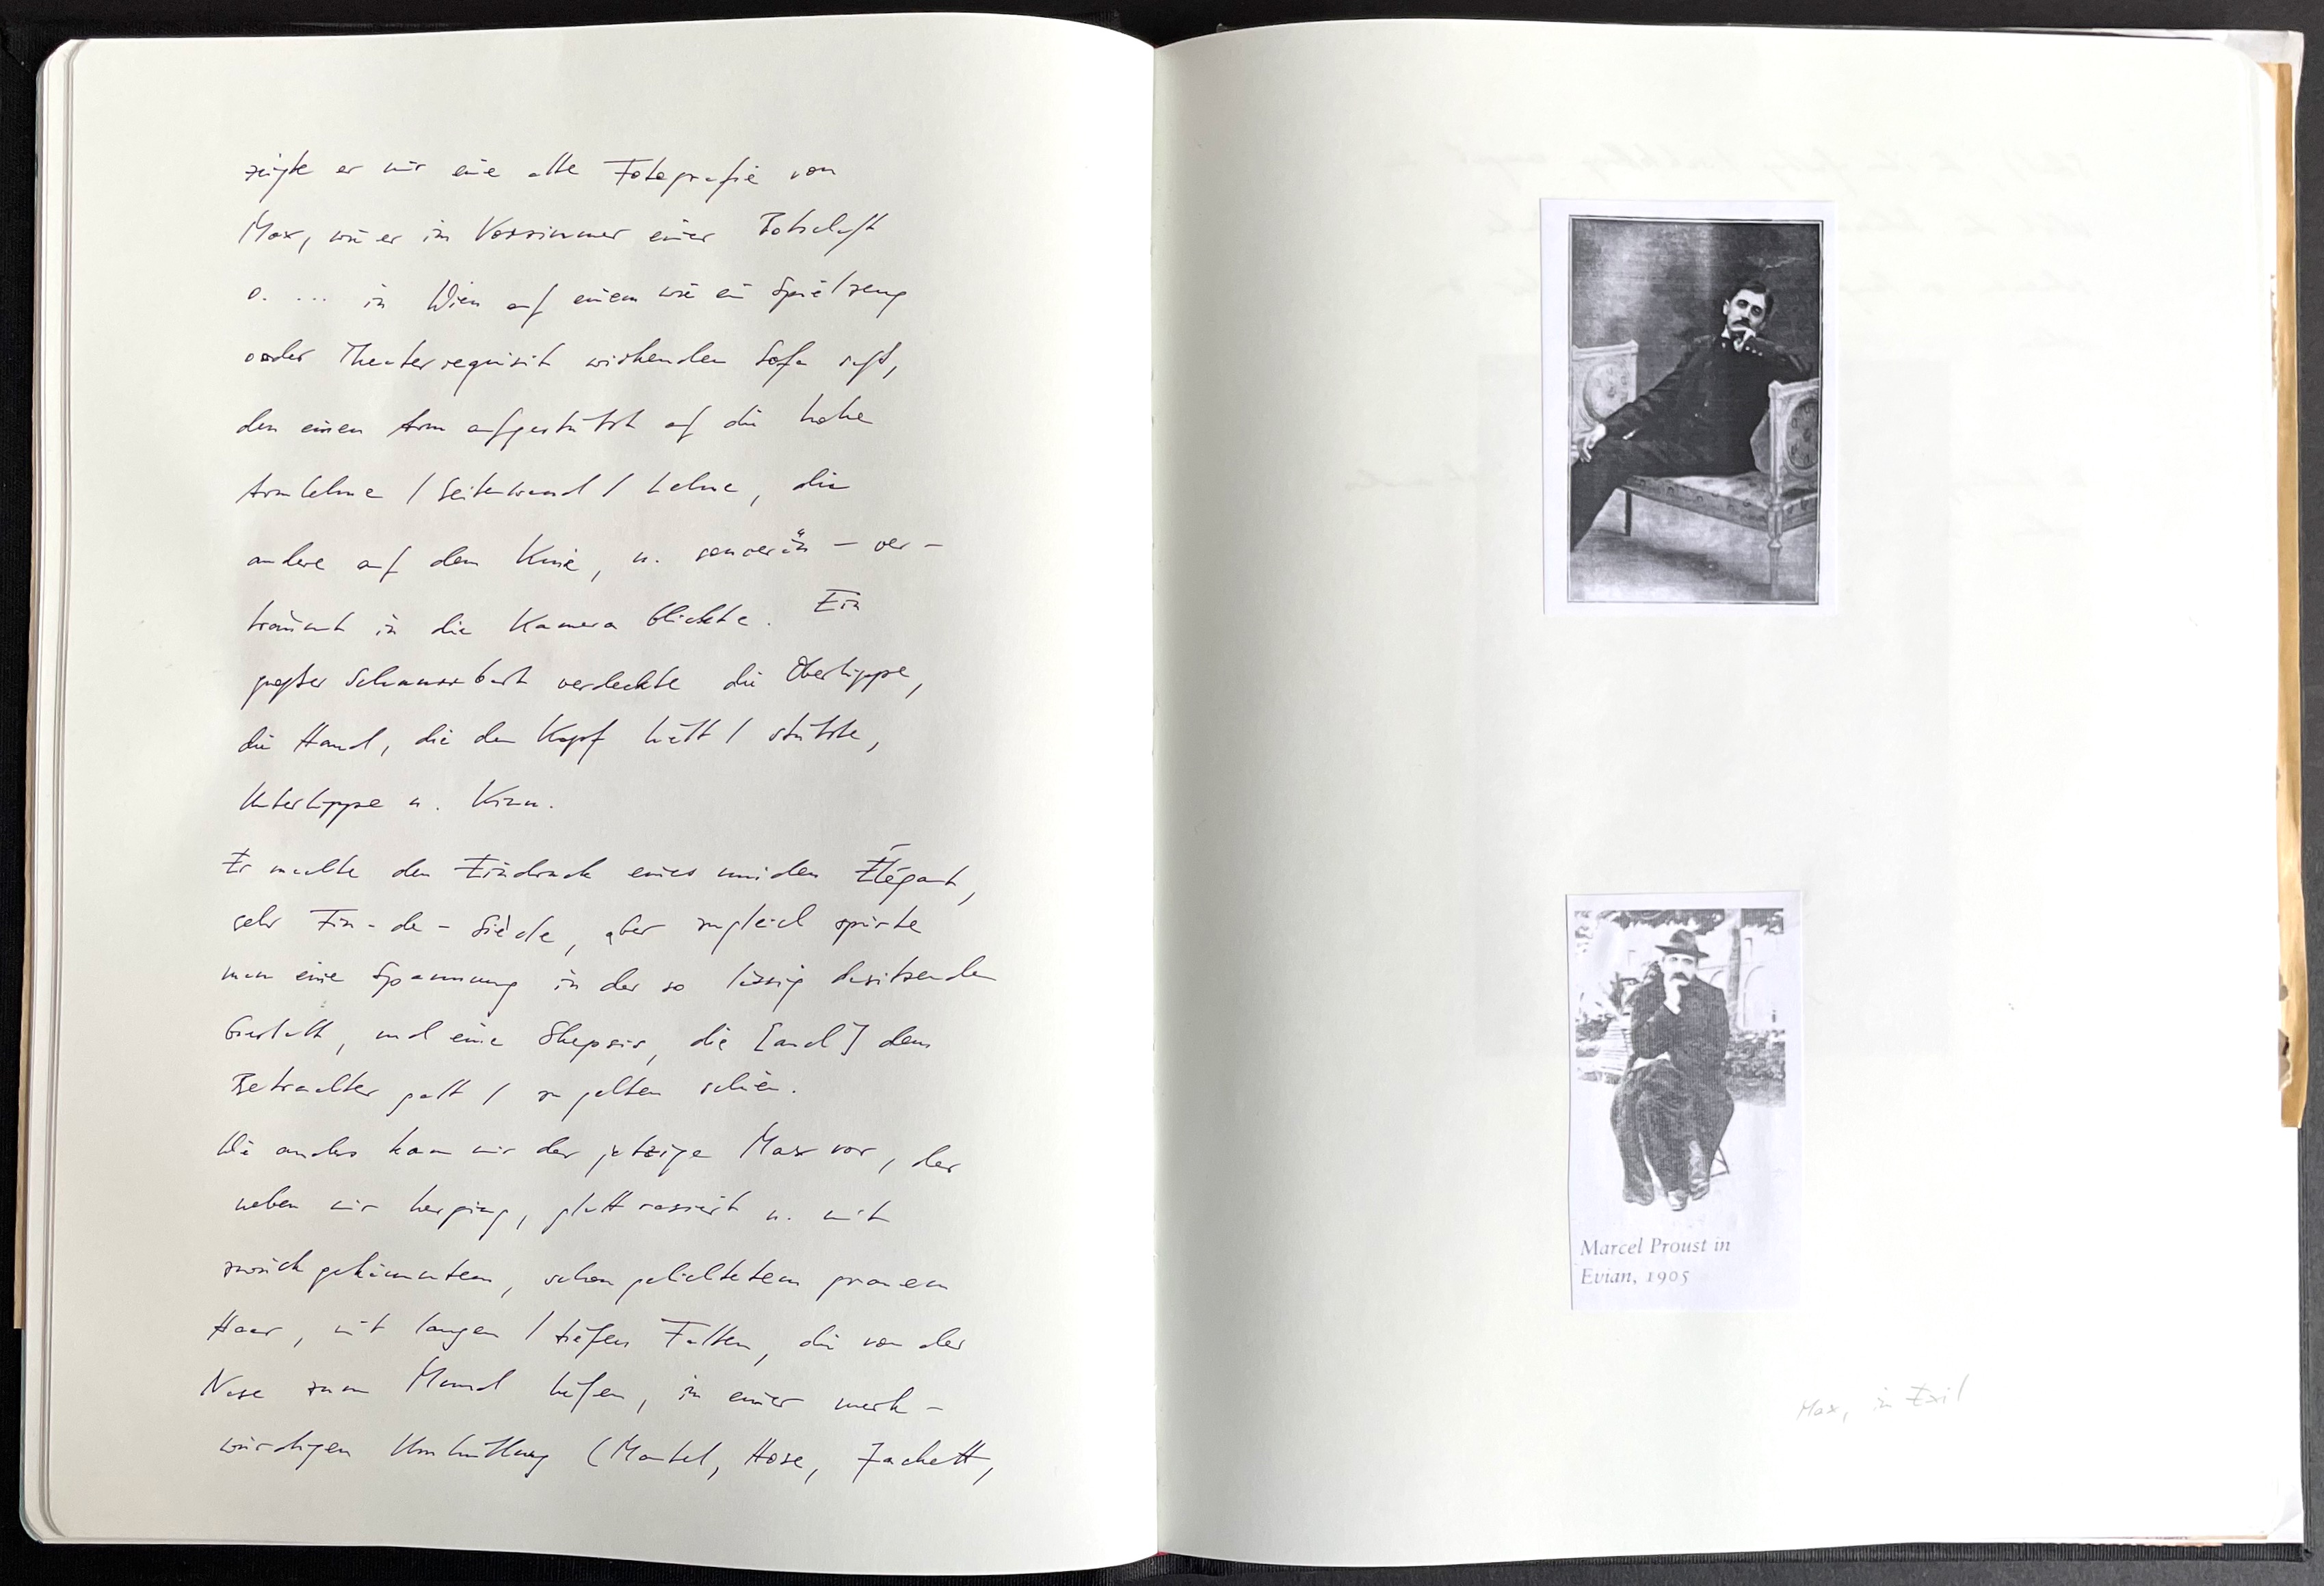 zeigte er mir eine alte Fotografie von
Max, wie er im Vorzimmer einer Botschaft
o. ... in Wien auf einem wie ein Spielzeug
oder Theaterrequisit wirkenden Sofa saß,
den einen Arm aufgestützt auf die hohe
Armlehne / Seitenwand / Lehne, die
andere auf dem Knie, u. souverän – ver-
träumt in die Kamera blickte. Ein
großer Schnauzbart verdeckte die Oberlippe,
die Hand, die den Kopf hält / stützte,
Unterlippe u. Kinn.
Er machte den Eindruck eines müden Élégant,
sehr Fin-de-Siècle, aber zugleich spürte
man eine Spannung in der so lässig dasitzenden
Gestalt, und eine Skepsis, die [auch] dem
Betrachter galt / zu gelten schien.
Wie anders kam mir der jetzige Max vor, der
neben mir herging, glatt rasiert u. mit
zurückgekämmtem, schon gelichtetem grauem
Haar, mit langen / tiefen Falten, die von der
Nase zum Mund liefen, in einer merk-
würdigen Umhüllung (Mantel, Hose, Jackett,
Marcel Proust in
Evian, 1905
Max, in Exil